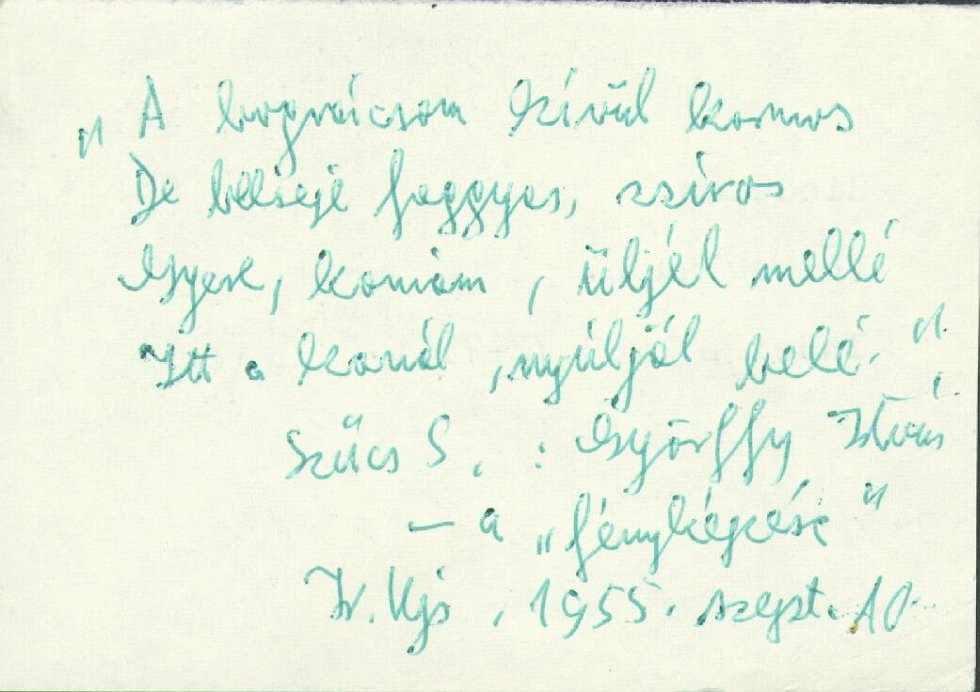 „A bográcsom kívül kormos
De belseje faggyas, zsíros
Gyere, komám, üljél mellé
Itt a kanál, nyúljál belé."
Szűcs S. : Györffy István
– a „fényképész"
Ir. Ujs, 1955. szept. 10.